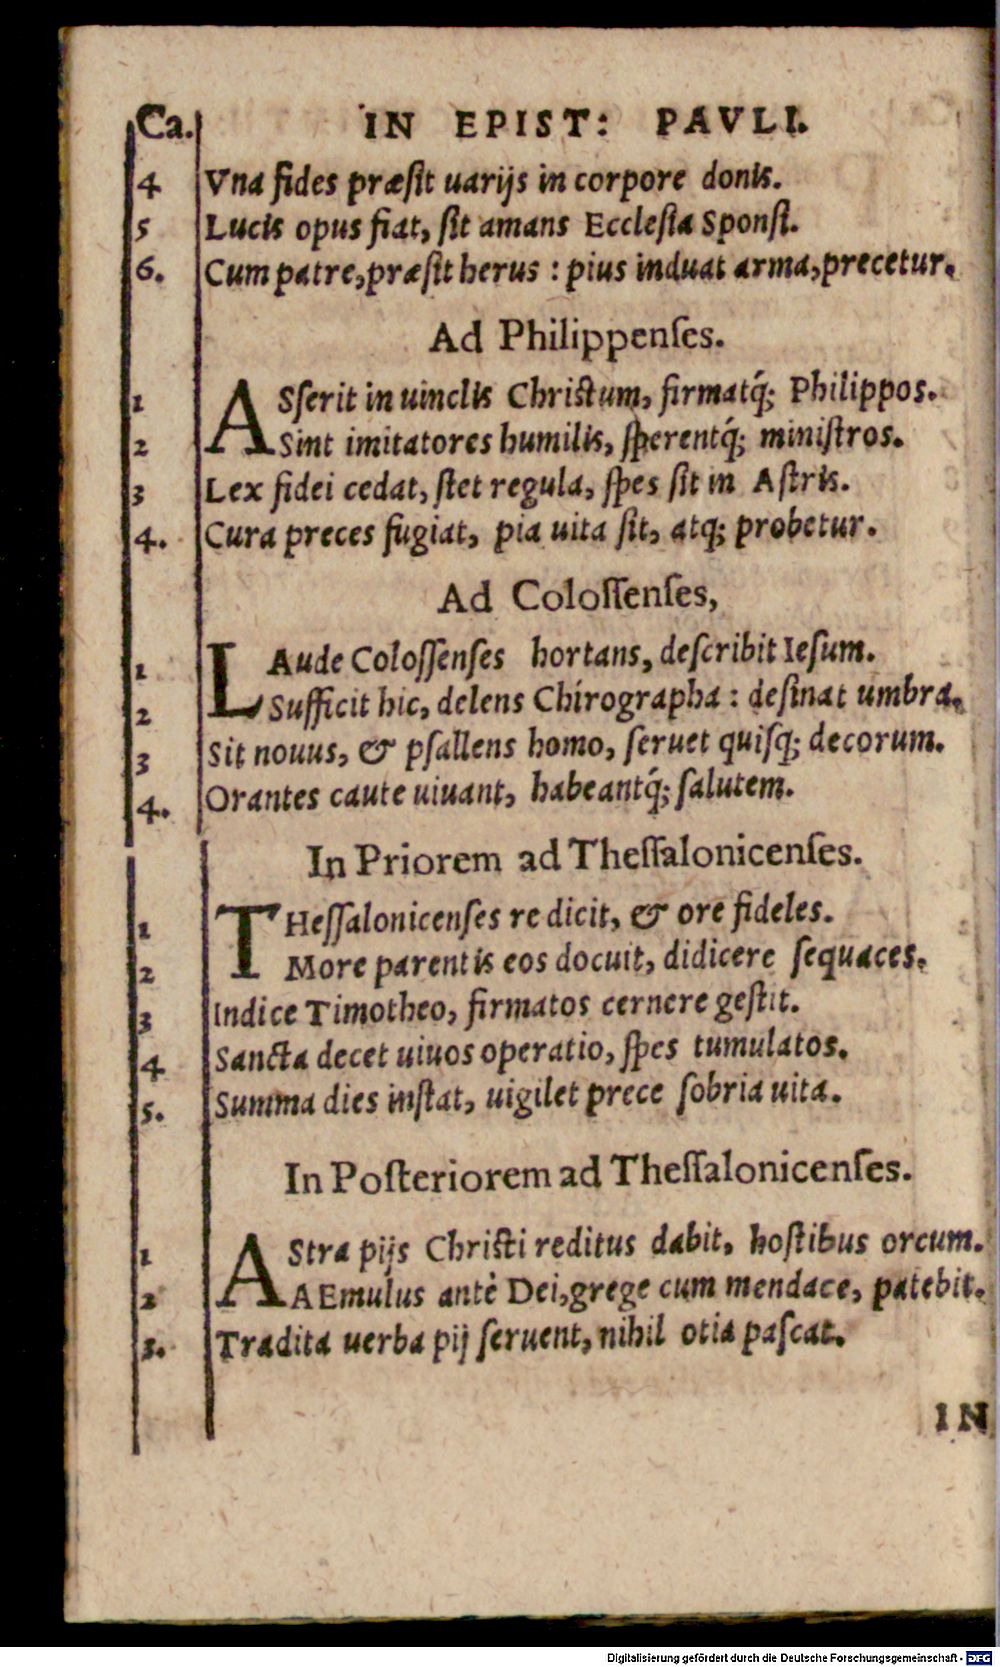 Ca. IN EPIST: PAVLI.
4 Vna fides præsit uarijs in corpore donis.
5 Lucis opus fiat, sit amans Ecclesia Sponsi.
6. Cum patre, præsit herus : pius induat arma, precetur.
Ad Philippenses.
1 ASserit in uinclis Christum, firmatq́; Philippos.
2 Sint imitatores humilis, sperentq́; ministros.
3 Lex fidei cedat, stet regula, spes sit in Astris.
4. Cura preces fugiat, pia uita sit, atq; probetur.
Ad Colossenses,
1 LAude Colossenses hortans, describit Iesum.
2 Sufficit hic, delens Chirographa : desinat umbra.
3 Sit nouus, & psallens homo, seruet quisq; decorum.
4. Orantes caute uiuant, habeantq́; salutem.
In Priorem ad Thessalonicenses.
1 THessalonicenses re dicit, & ore fideles.
2 More parentis eos docuit, didicere sequaces.
3 Indice Timotheo, firmatos cernere gestit.
4 Sancta decet uiuos operatio, spes tumulatos.
5. Summa dies instat, uigilet prece sobria uita.
In Posteriorem ad Thessalonicenses.
1 AStra pijs Christi reditus dabit, hostibus orcum.
2 AEmulus antè Dei, grege cum mendace, patebit.
3. Tradita uerba pij seruent, nihil otia pascat.
IN
Digitalisierung gefördert durch die Deutsche Forschungsgemeinschaft - DFG